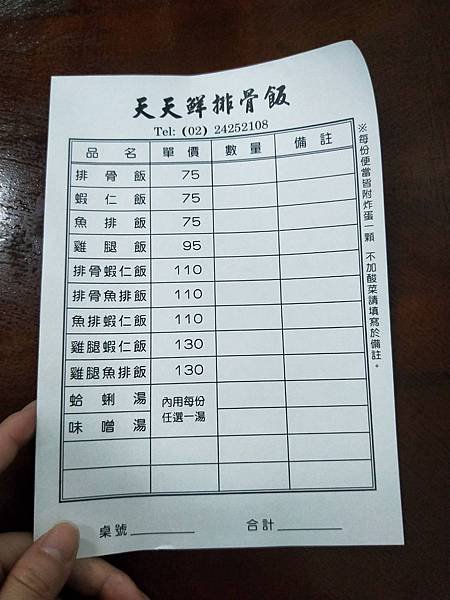 天天鮮排骨飯
Tel: (02) 24252108
品名 單價 數量 備註
排骨飯 75
蝦仁飯 75
魚排飯 75
雞腿飯 95
排骨蝦仁飯 110
排骨魚排飯 110
魚排蝦仁飯 110
雞腿蝦仁飯 130
雞腿魚排飯 130
蛤蜊湯 內用每份
味噌湯 任選一湯
※每份便當皆附炸蛋一顆 不加酸菜請填寫於備註。
桌號 合計